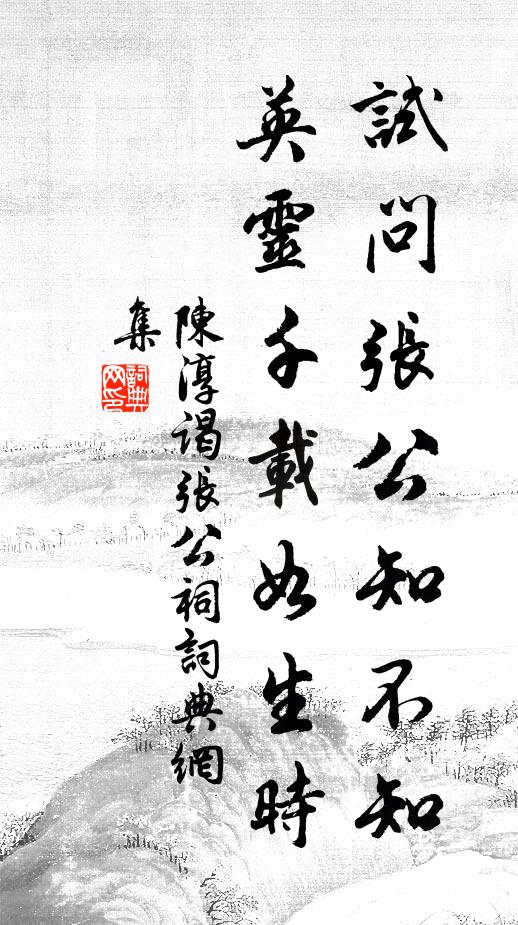 試問張公知不知
英靈千載如生時
陳淳謁張公祠詞典網
集
詞典
网印